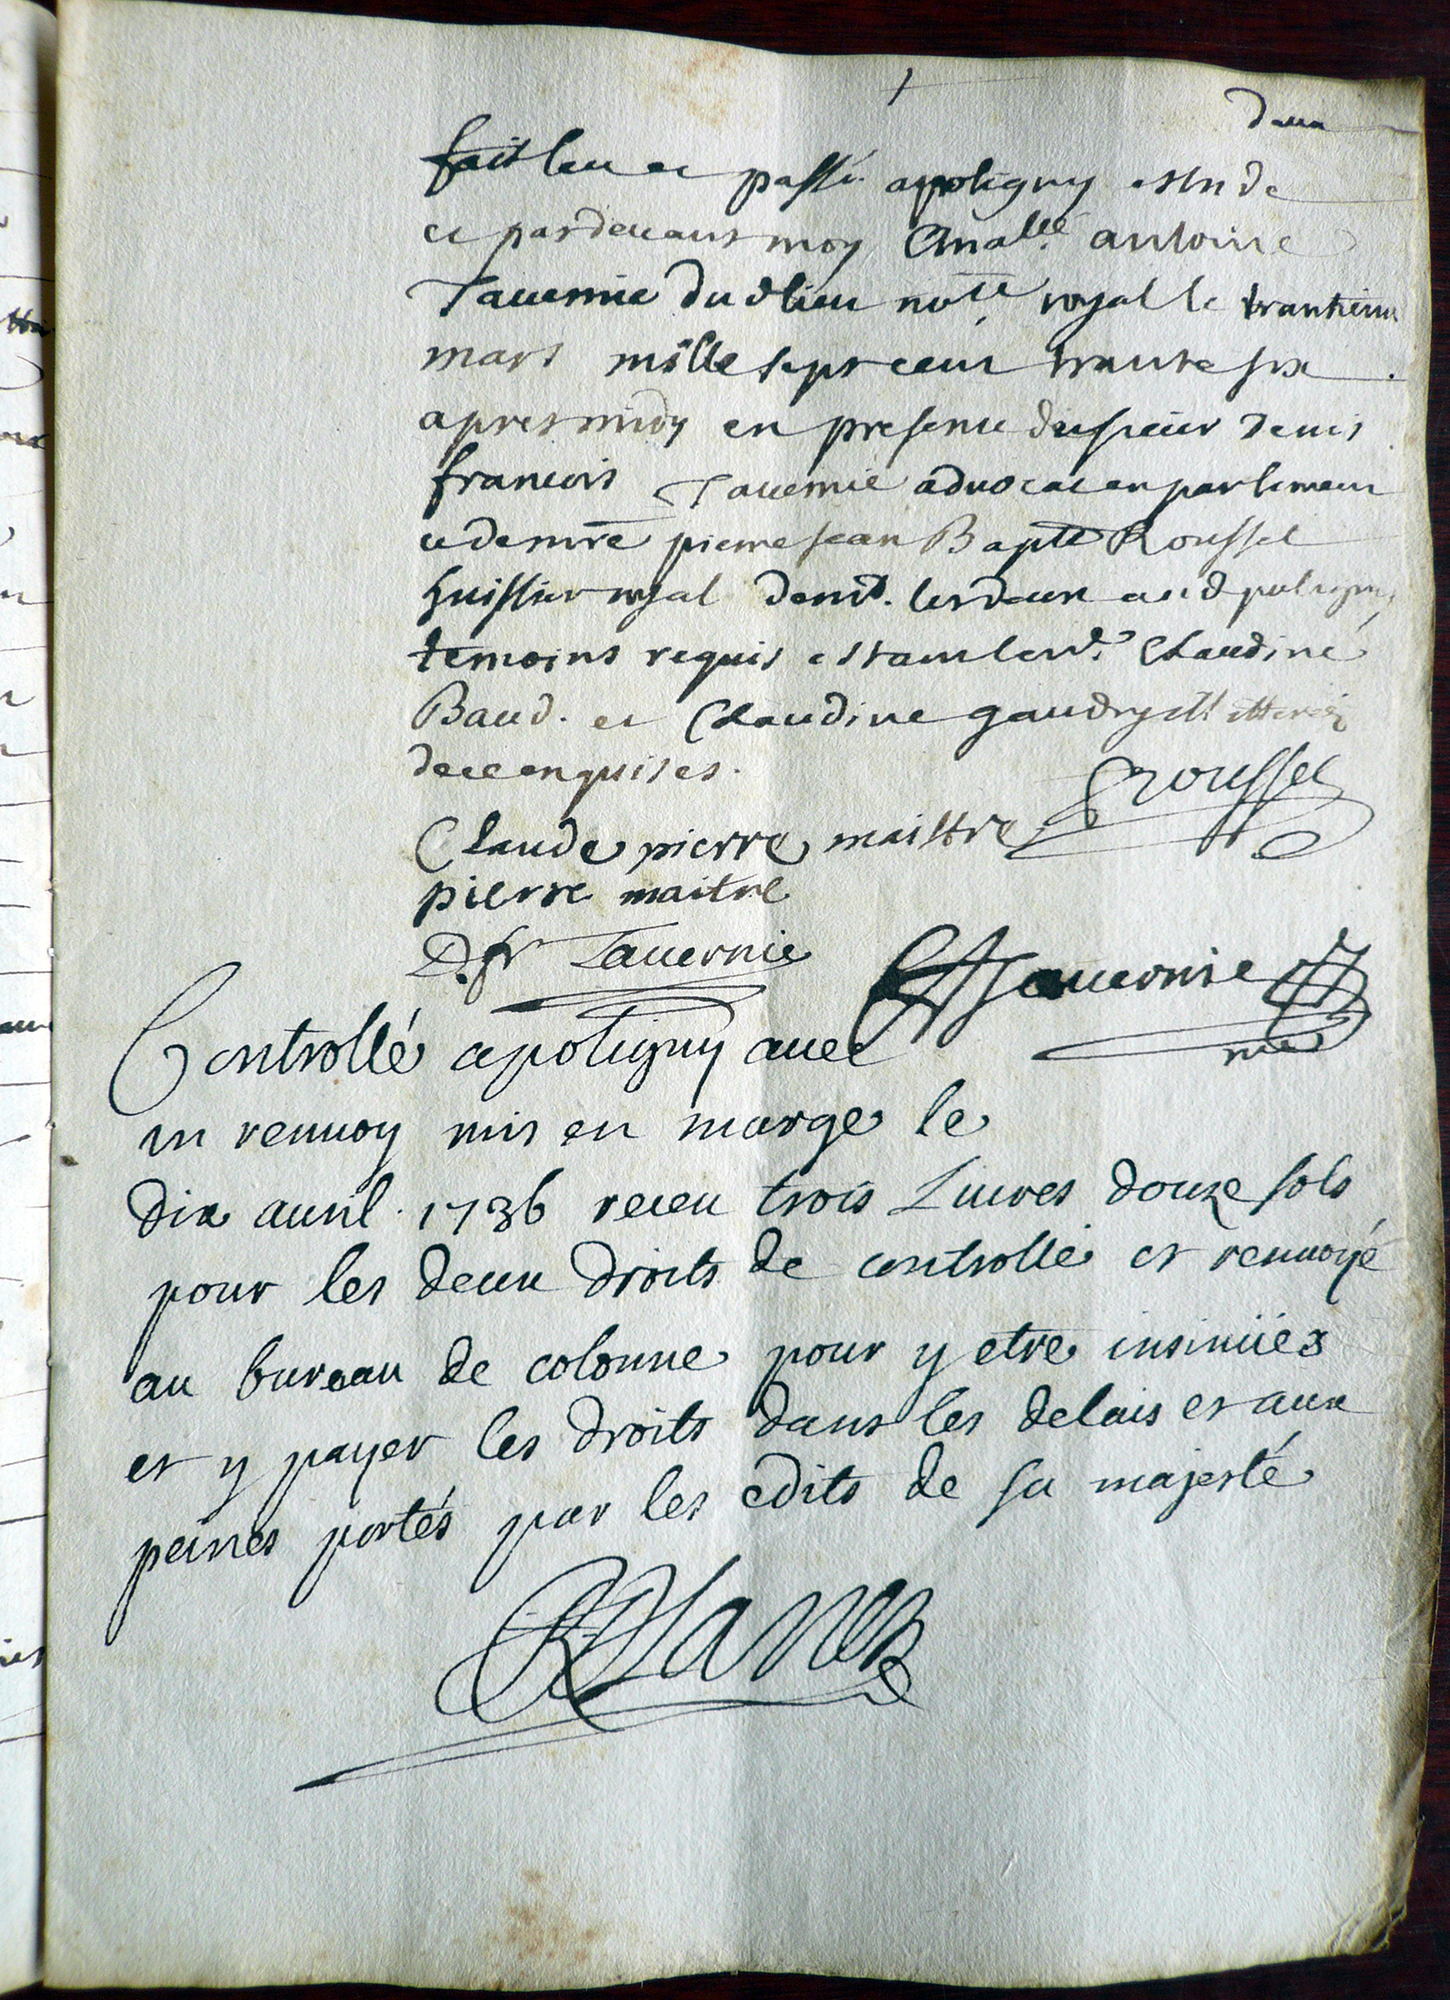 deux
fait leu et passé apoligny estude
et pardeuant moy Anatle antoine
Tauernie dudlieu notre royal le trantieme
mars mille sept cent trante six
apres midy en presence du sieur denis
francois Tauernie advocat en parlement
et de mre pierre jean Bapte Roussel
huissier royal demt. les deux aud poligny
temoins requis
Baud. et Claudine gaudry
de ce enquises.
Roussel
Claude pierre maistre
pierre maitre
D. fr Tauernie
Tauernie
nre
Controllé apoligny auec
un renuoy mis en marge le
dix auril 1736 receu trois Liures douze sols
pour les deux droits de controlle et renuoyé
au bureau de colonne pour y etre insinuies
et y payer les droits dans les delais et aux
peines portés par les edits de sa majesté